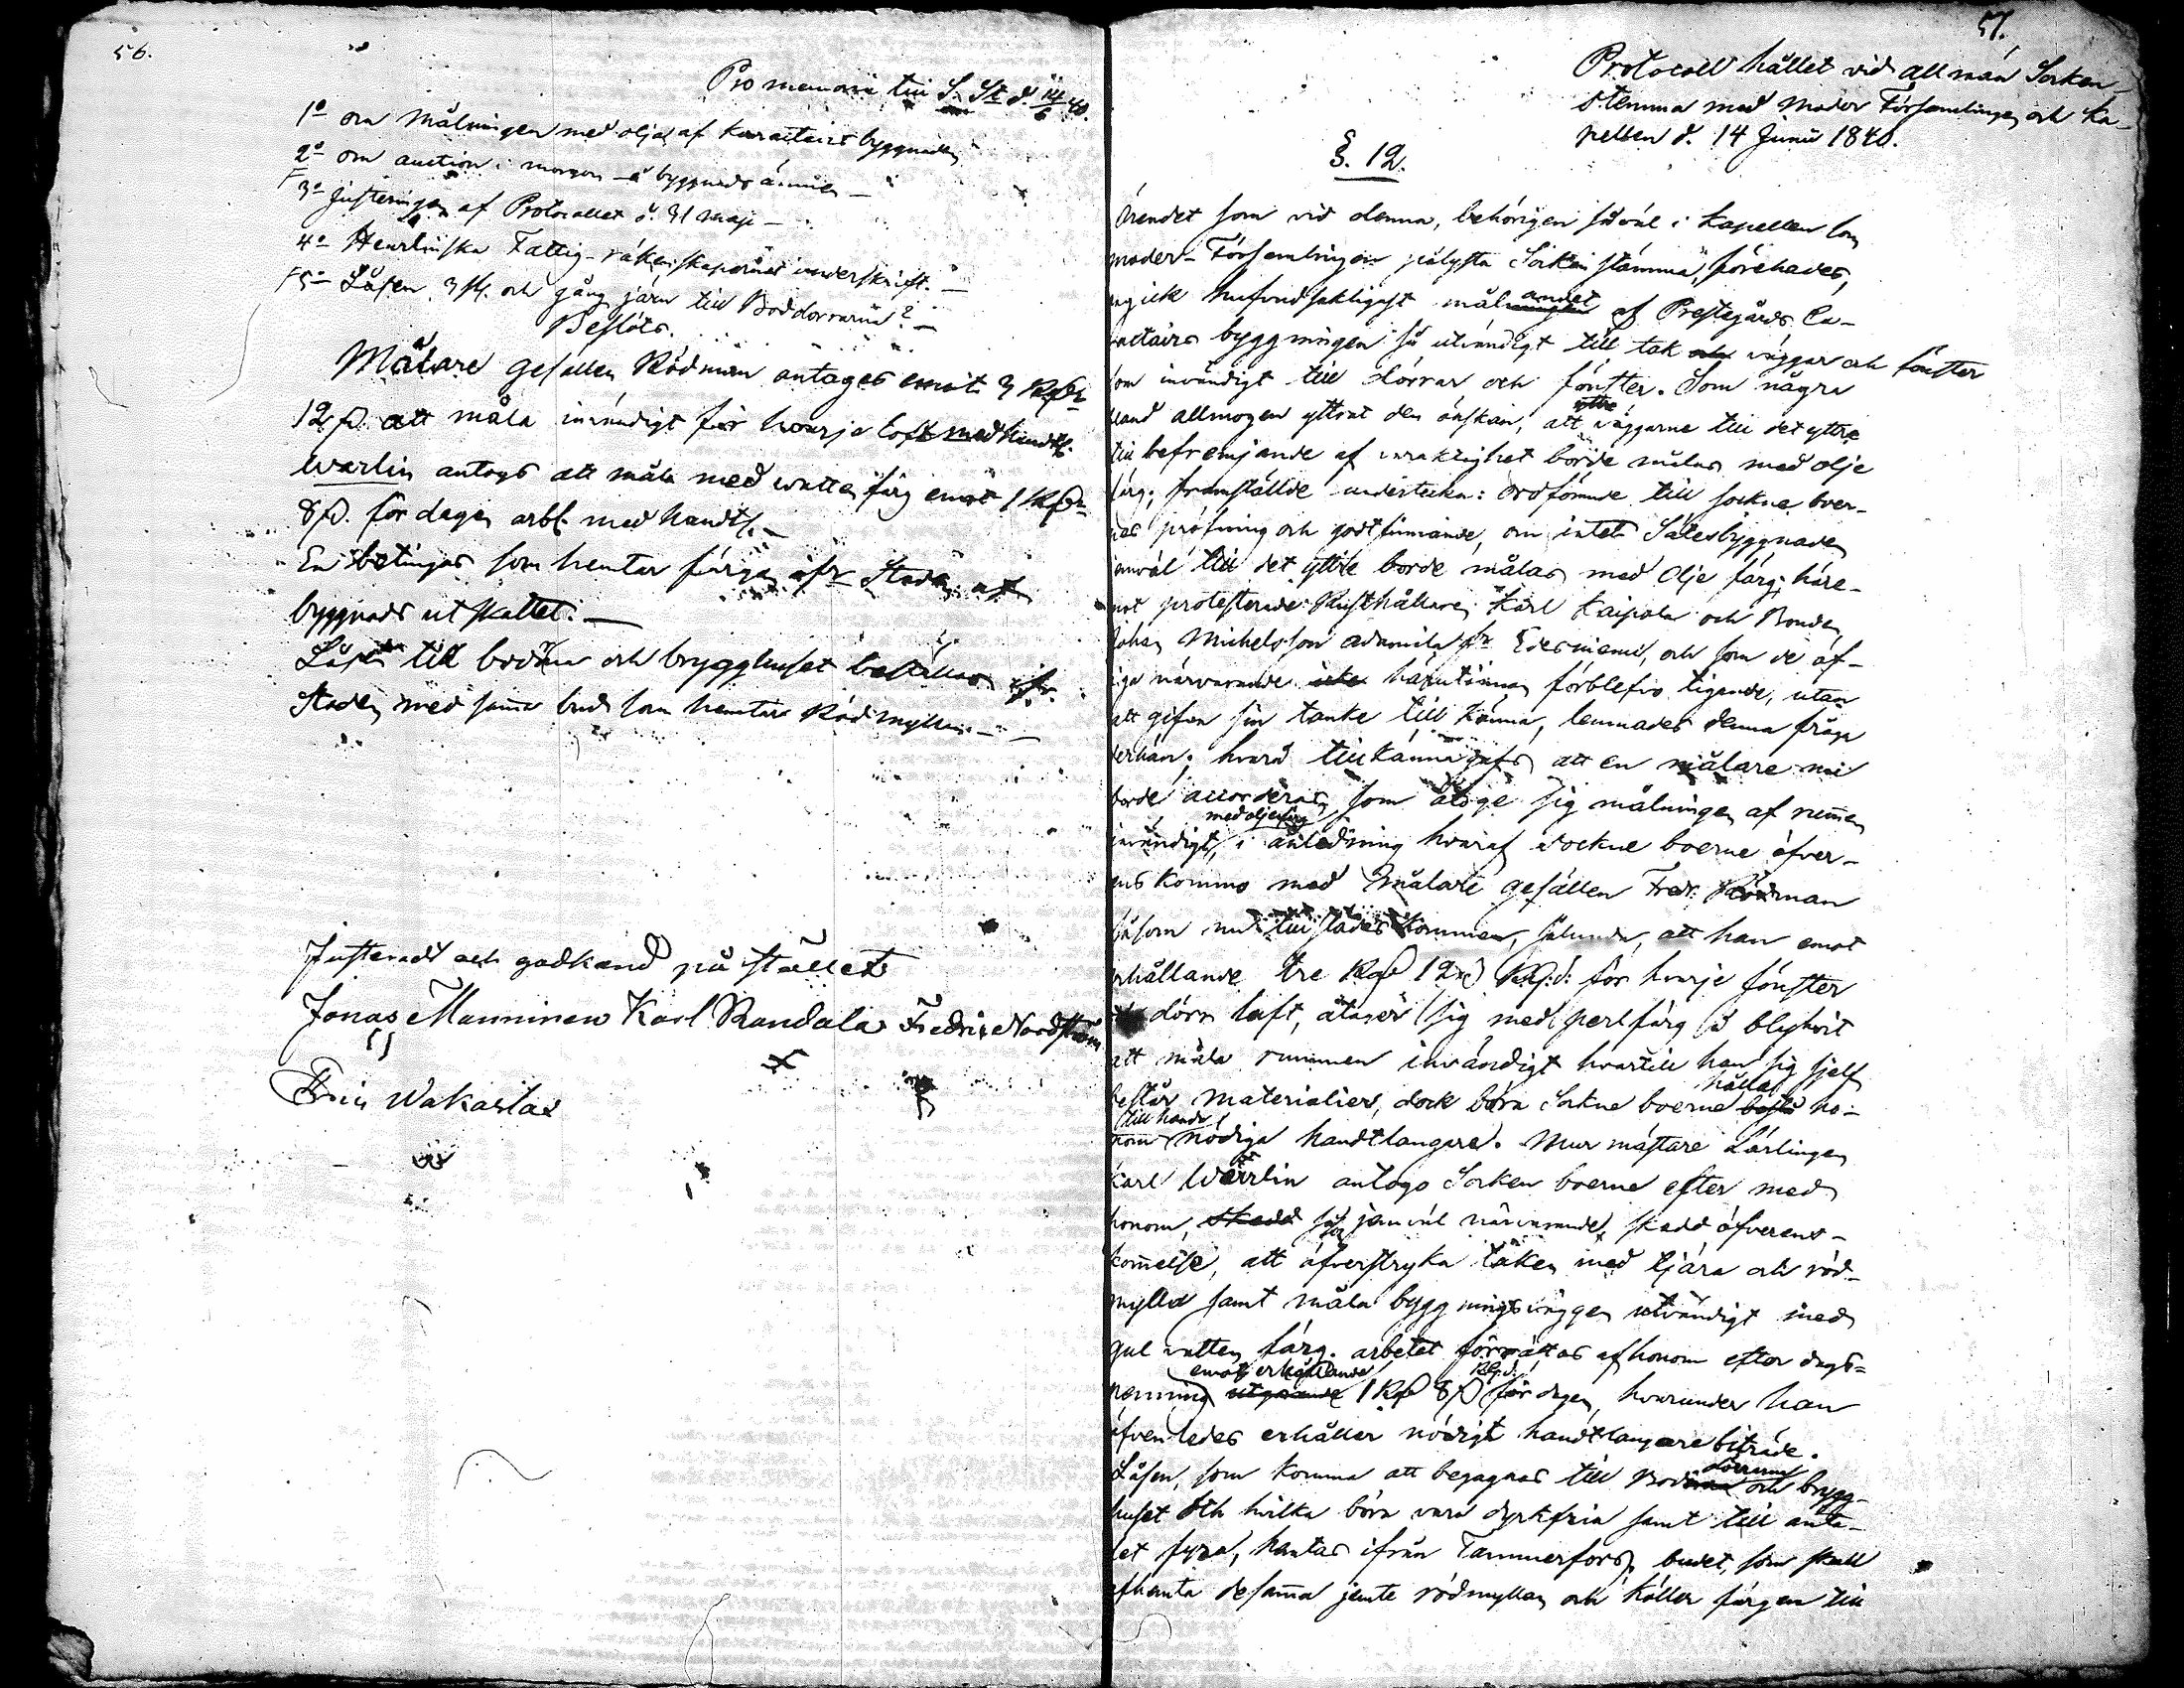 56.
Pro memoria till S. St. d. 14/6 40.
1o om Målningen med olja af Karactairs byggnaden
2o om auction i morgon å byggnads ämnen —
3o Justeringen af Protocollet d. 31 Maji —
4o Heurlinska Fattig-räkenskapernas underskrift. —
5o Låsen 3 st. och gång järn till Boddörrarna? —
Beslöts.
Målare Gesällen Rödman antages emot 3 Rub
12 β. att måla invändigt för hvarje loft med handtl.
Werlin antogs att måla med vatten färg emot 1 Rub
8 β. för dagen arbt. med handtl. —
En betingas som hemtar färgen ifr Staden af
byggnads utskottet. —
Låsen till bodarna och brygghuset beställas ifr.
Staden med samma bud som hemtar Rödmyllan. —
Justeradt och godkänd på stället
Jonas Manninen Karl Randala Fredric Nordström
Wakaslas
57.
Protocoll hållet vid allmän Socken-
stemma med Moder Församlingen och Ka-
pellen d. 14 Junii 1840.
§. 12.
Ärendet som vid denna, behörigen såväl i Kapellen som
moder-Församlingen pålysta Sockenstämma, förehades,
angick hufvudsakligast målningen andet af Prestegårds Ca-
ractairs byggningen så utvändigt till tak och väggar och fönster
som invändigt till dörrar och fönster. Som några
bland allmogen yttrat den önskan, att yttre väggarne till det yttre
till befremjande af varaktighet borde målas med olje
färg; framställde undertecknad: ordförande till sockne boer-
nas pröfning och godtfinnande, om intet Sätesbyggnaden
jemväl till det yttre borde målas med olje färg; häre-
mot protesterade Rusthållaren Karl Kaipola och Bonden
Johan Michelsson Adamila fr Edesniemi, och som de öf-
riga närvarande icke härutinnan förblefvo tigande, utan
att gifva sin tanke till känna, lemnades denna fråga
derhän; hvard tillkännagafs att en målare nu
borde accorderas, som åtoge sig målningen af rummen
invändigt med oljefärg, i anledning hvaraf Sockne boerne öfver-
ens kommo med Målare gesällen Fredr: Rödman
såsom nu tillstädes kommen, sålunda, att han emot
erhållande tre Rub 12 β för hvarje fönster
och dörr luft, åtager sig med perlfärg blyhvit
att måla rummen invändigt hvartill han sig sjelf
består materialier, dock böra Sockne boerne bestå hålla ho-
nom till hands nödiga handtlangare. Mur mästare Lärlingen
Karl Werlin antogo Socken boerne efter med
honom, skedd såsom jemväl närvarande, skedd öfverens-
kommelse, att öfverstryka taken med tjära och röd-
mylla samt måla byggningsväggen utvändigt med
gul vatten färg. arbetet förrättas af honom efter dags-
penning utgörande emot erhållande 1 Rub 8 β för dagen, hvarunder han
äfven ledes erhåller nödigt handtlangare biträde.
Låsen, som komma att begagnas till Bod dörrarne och brygg-
huset och hvilka böra vara dyrkfria samt till anta-
let fyra, hämtas ifrån Tammerfors, budet, som skall
afhemta desamma jemte rödmyllan och köller färgen till